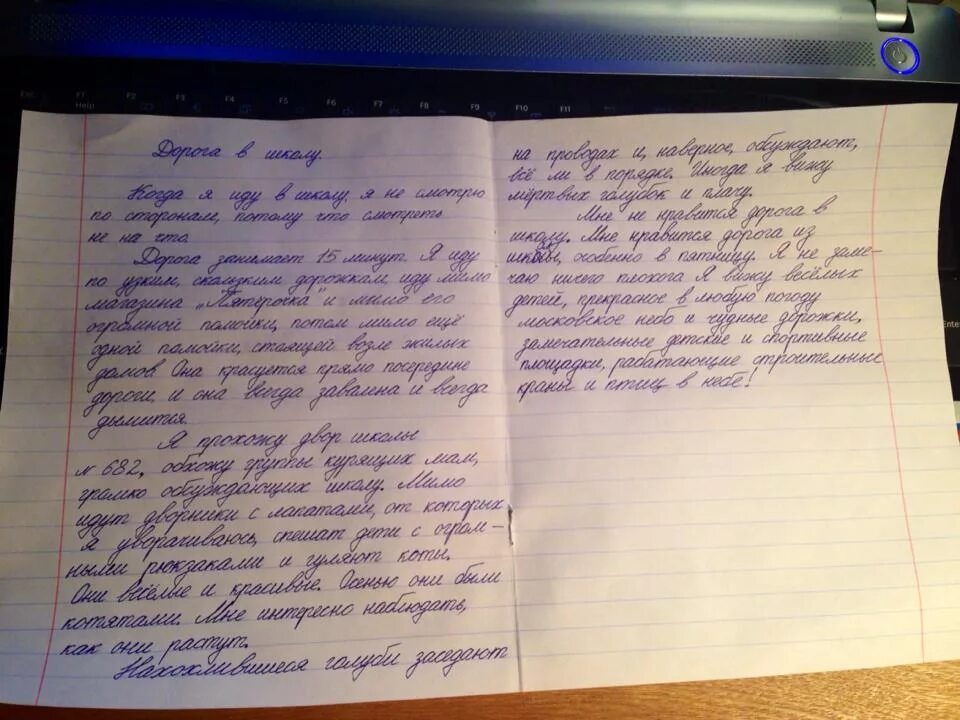 Esc
F1
Help
F2
F3
F4
F5
F6
F7
F8
F9
F10
F11
Дорога в школу.
Когда я иду в школу, я не смотрю
по сторонам, потому что смотреть
не на что.
Дорога занимает 15 минут. Я иду
по узким, скользким дорожкам, иду мимо
магазина „Пятёрочка" и мимо его
огромной помойки, потом мимо ещё
одной помойки, стоящей возле жилых
домов. Она красуется прямо посередине
дороги, и она всегда завалина и всегда
дымится.
Я прохожу двор школы
№ 682, обхожу группы курящих мам,
громко обсуждающих школу. Мимо
идут дворники с лапатами, от которых
я уворачиваюсь, спешат дети с огром-
ными рюкзаками и гуляют коты.
Они весёлые и красивые. Осенью они были
котятами. Мне интересно наблюдать,
как они растут.
Нахохлившиеся голуби заседают
на проводах и, наверное, обсуждают,
всё ли в порядке. Иногда я вижу
мёртвых голубок и плачу.
Мне не нравится дорога в
школу. Мне нравится дорога из
школы, особенно в пятницу. Я не заме-
чаю ничего плохога. Я вижу весёлых
детей, прекрасное в любую погоду
московское небо и чудные дорожки,
замечательные детские и спортивные
площадки, работающие строительные
краны и птиц в небе!
Enter